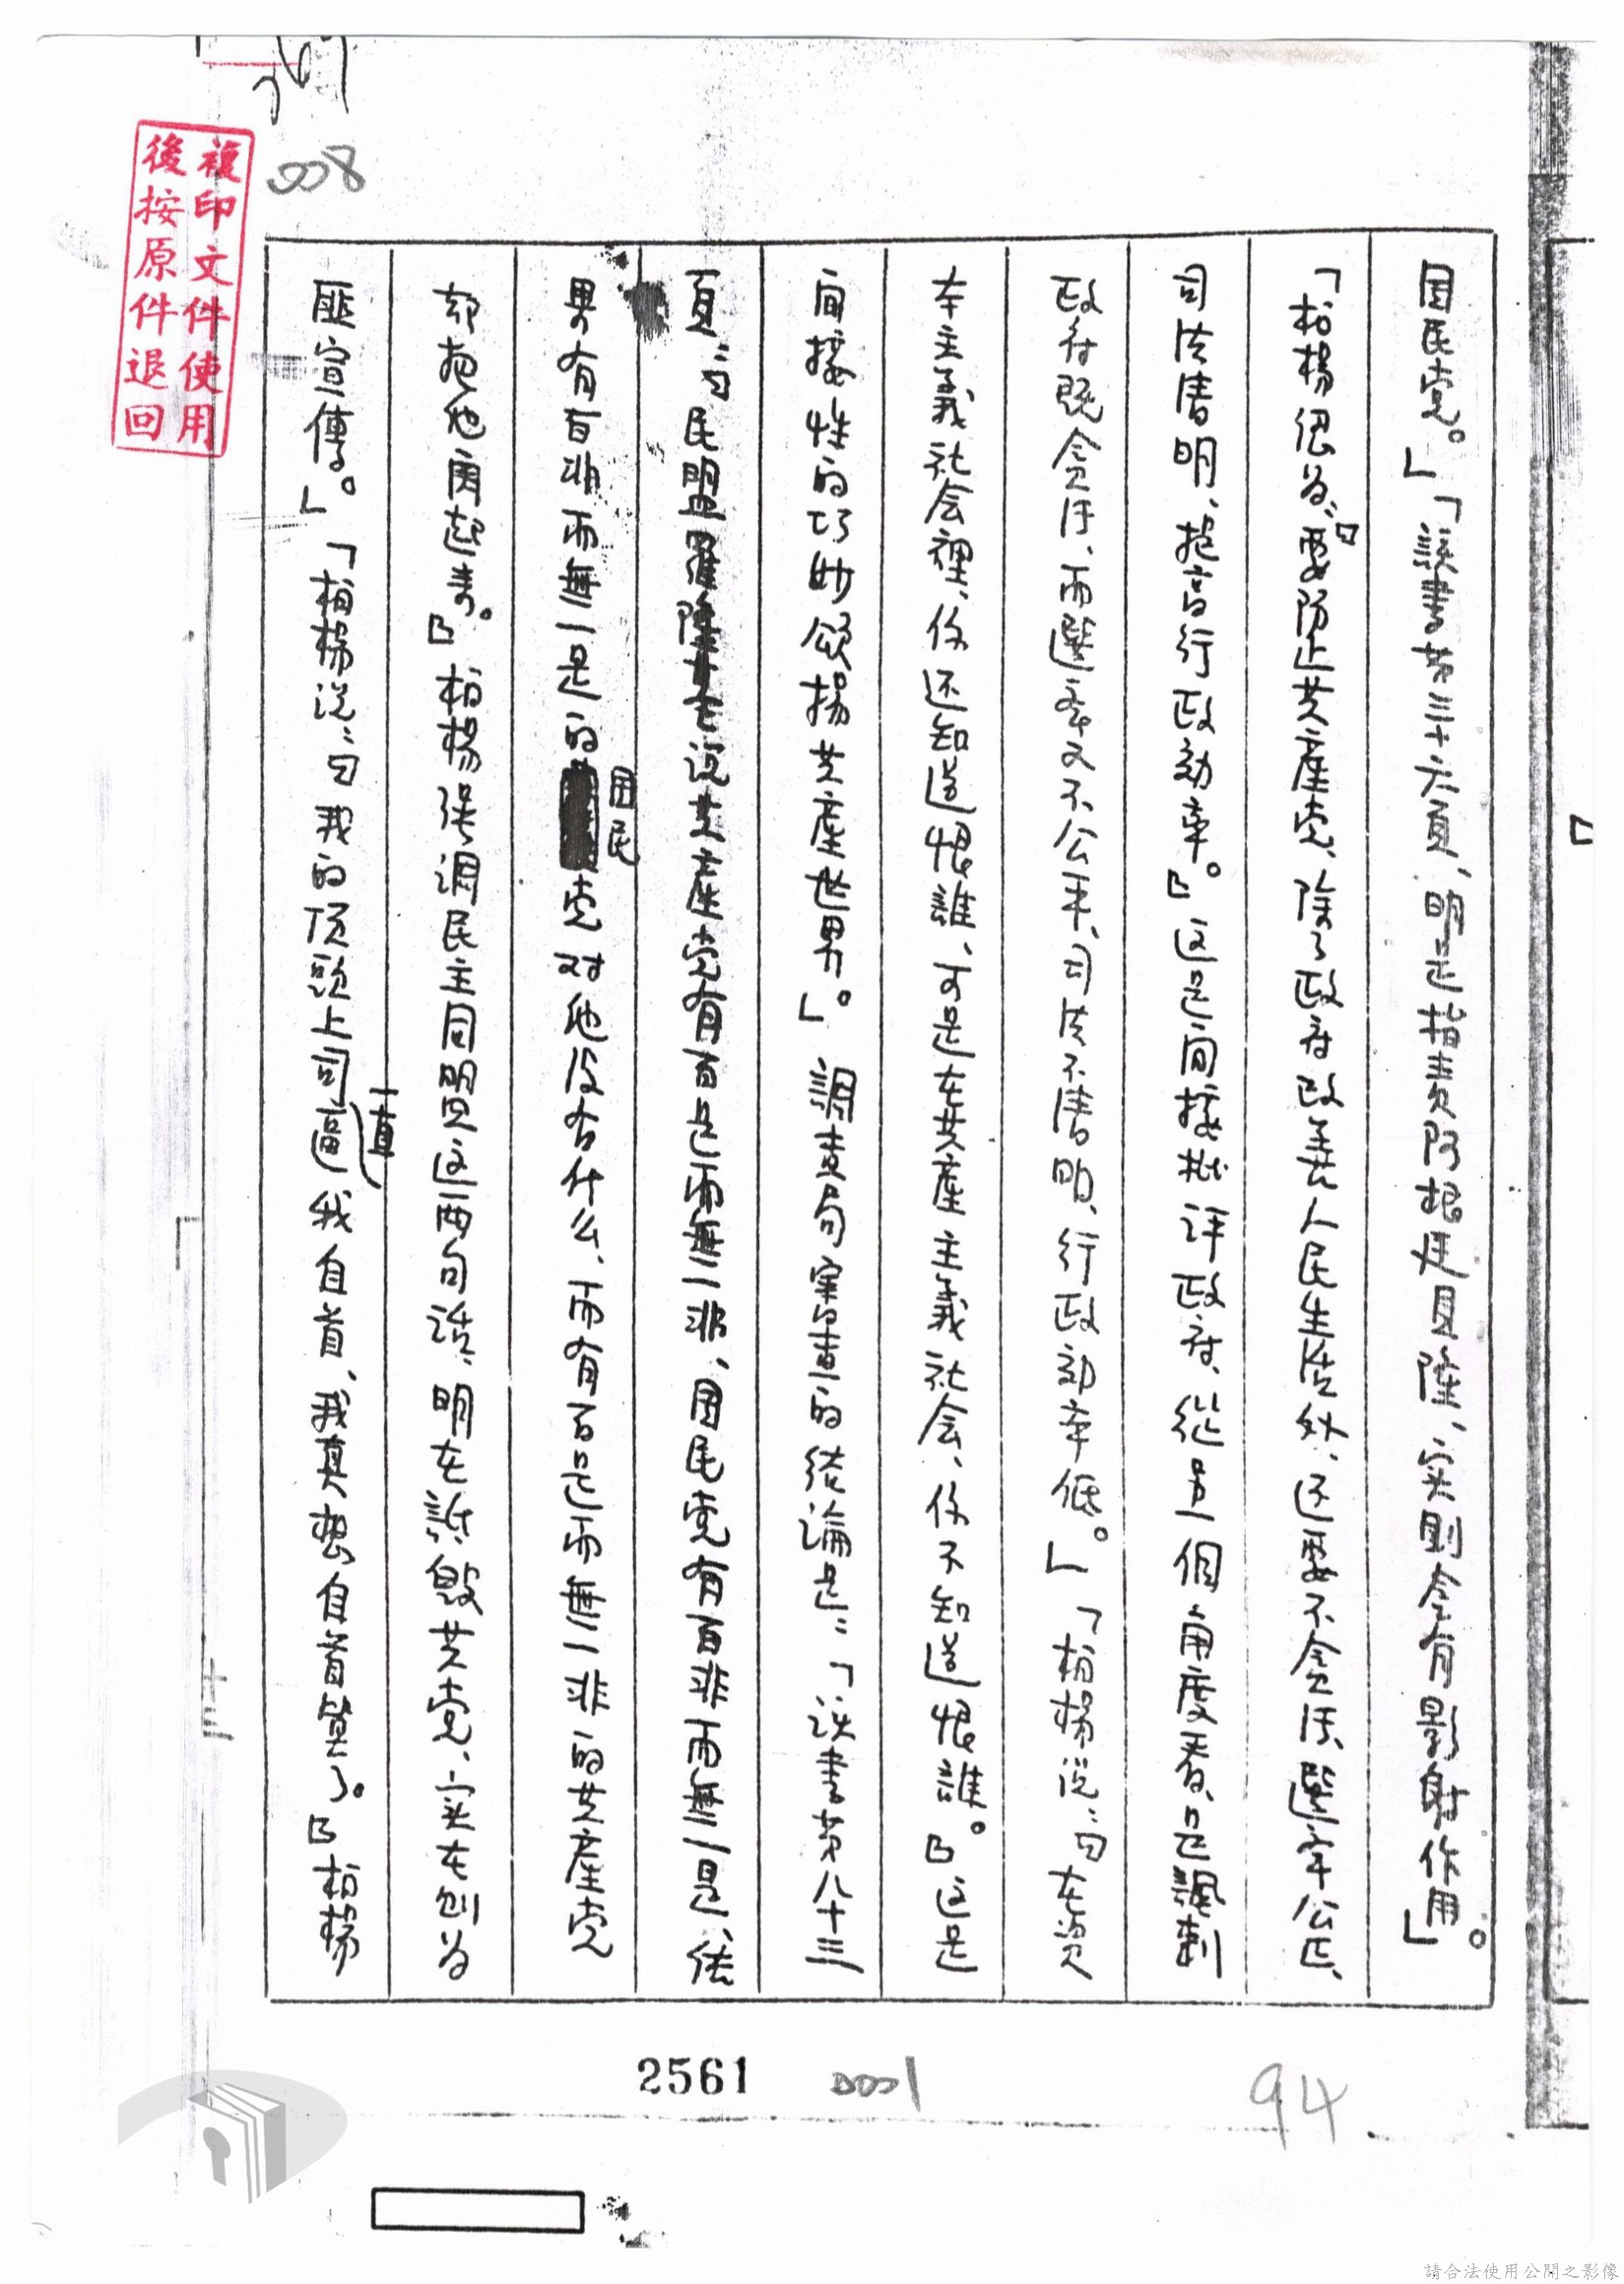 008
複印文件使用
後按原件退回
国民党。」「該書第三十六頁、明是指責阿根廷貝隆、实則含有影射作用」。
「柏楊認为、『要防止共產党、除了政府改善人民生活外、还要不貪污、選举公正、
司法清明、提高行政効率。』这是间接批评政府、從另一個角度看、是諷刺
政府既貪污、而選举又不公平、司法不清明、行政効率低。」「柏楊说：『在资
本主義社会裡、你还知道恨誰、可是在共產主義社会、你不知道恨誰。』这是
间接性的巧妙颂揚共產世界」。調查局審查的结論是：「该書第八十三
頁：『民盟羅隆基说共產党有百是而無一非、国民党有百非而無一是、结
果有百非而無一是的国民党对他没有什么、而有百是而無一非的共產党
却把他鬥起來。』柏楊强調民主同盟这两句话、明在詆毀共党、实在刻为
匪宣傳。」「柏楊说：『我的顶頭上司一直逼我自首、我真想自首算了。』柏楊
十三
2561
0001
94
請合法使用公開之影像